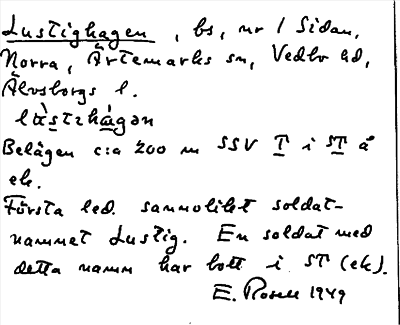 Lustighagen, bs, nr 1 Sidan,
Norra, Ärtemarks sn, Vedbo hd,
Älvsborgs l.
Belägen c:a 200 m SSV T i ST å
ek.
Första led. sannolikt soldat-
namnet Lustig. En soldat med
detta namn har bott i ST (ek).
E. Rosell 1949